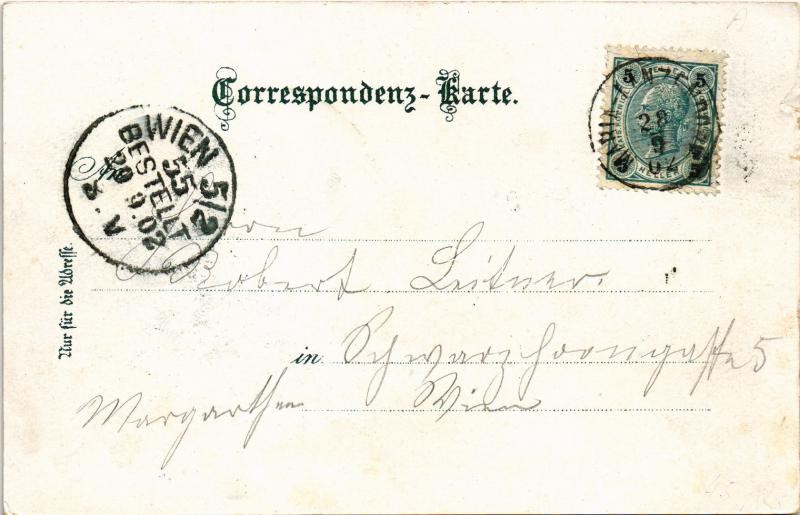 Correspondenz-Karte.
5 5
HELLER
28
9
02
WIEN 5/2
55
BESTELLT
29 9.02
8.V
An
Herrn
Robert Leitner.
in Schwarzhorngasse 5
Margarthen Wien
Nur für die Adresse.